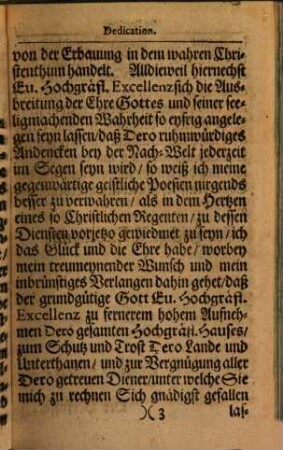 Dedication.
von der Erbauung in dem wahren Chri-
stenthum handelt. Alldieweil hiernechst
Eu. Hochgräfl. Excellenz sich die Aus-
breitung der Ehre Gottes und seiner see-
ligmachenden Wahrheit so eyfrig angele-
gen seyn lassen/ daß Dero ruhmwürdiges
Andencken bey der Nach-Welt jederzeit
im Segen seyn wird/ so weiß ich meine
gegenwärtige geistliche Poesien nirgends
besser zu verwahren/ als in dem Hertzen
eines so Christlichen Regenten/ zu dessen
Diensten vorjetzo gewiedmet zu seyn/ ich
das Glück und die Ehre habe/ worbey
mein treumeynender Wunsch und mein
inbrünstiges Verlangen dahin gehet/ daß
der grundgütige Gott Eu. Hochgräfl.
Excellenz zu fernerem hohem Aufneh-
men Dero gesamten Hochgräfl. Hauses/
zum Schutz und Trost Dero Lande und
Unterthanen/ und zur Vergnügung aller
Dero getreuen Diener/ unter welche Sie
mich zu rechnen Sich gnädigst gefallen
)( 3 las-